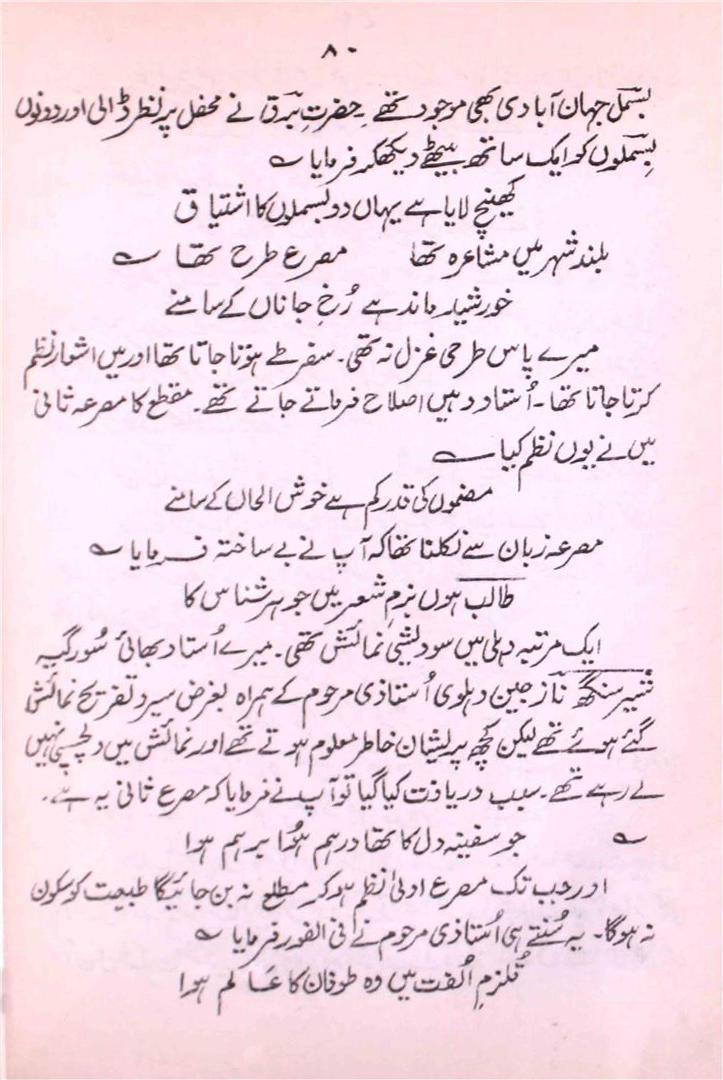 ۸۰
بسملؔ جہان آبادی بھی موجود تھے۔ حضرتِ برقؔ نے محفل پر نظر ڈالی اور دونوں
بسملوں کو ایک ساتھ بیٹھے دیکھکر فرمایا ؎
کھینچ لایا ہے یہاں دو بسملوں کا اشتیاق
بلند شہر میں مشاعرہ تھا مصرع طرح تھا ؎
خورشید ماند ہے رُخِ جاناں کے سامنے
میرے پاس طرحی غزل نہ تھی۔ سفر طے ہوتا جاتا تھا اور میں اشعار نظم
کرتا جاتا تھا۔ اُستاد وہیں اصلاح فرماتے جاتے تھے۔ مقطع کا مصرعہ ثانی
میں نے یوں نظم کیا ؎
مضموں کی قدر کم ہے خوش الحاں کے سامنے
مصرعہ زبان سے نکلنا تھا کہ آپ نے بے ساختہ فرمایا ؎
طالبؔ ہوں بزمِ شعر میں جوہر شناس کا
ایک مرتبہ دہلی میں سودیشی نمائش تھی۔ میرے اُستاد بھائی سُورگیہ
شیر سنگھ نازؔ جین دہلوی اُستاذی مرحوم کے ہمراہ بغرض سیر و تفریح نمائش
گئے ہوئے تھے لیکن کچھ پریشان خاطر معلوم ہوتے تھے اور نمائش میں دلچسپی نہیں
لے رہے تھے۔ سبب دریافت کیا گیا تو آپ نے فرمایا کہ مصرع ثانی یہ ہے۔
؎ جو سفینہ دل کا تھا درہم ہُوا برہم ہوا
اور جب تک مصرع اولیٰ نظم ہو کر مطلع نہ بن جائیگا طبیعت کو سکون
نہ ہوگا۔ یہ سُنتے ہی اُستاذی مرحوم نے فی الفور فرمایا ؎
قُلزمِ اُلفت میں وہ طوفان کا عالم ہوا